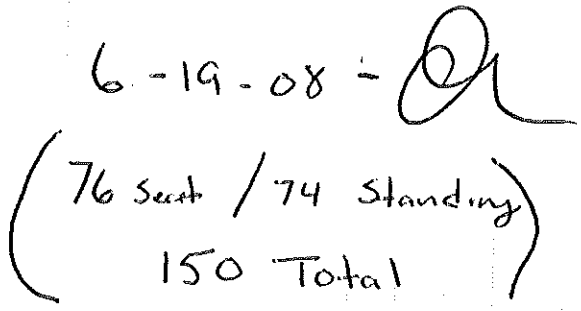 6-19-08 -
(76 Seat / 74 Standing)
150 Total